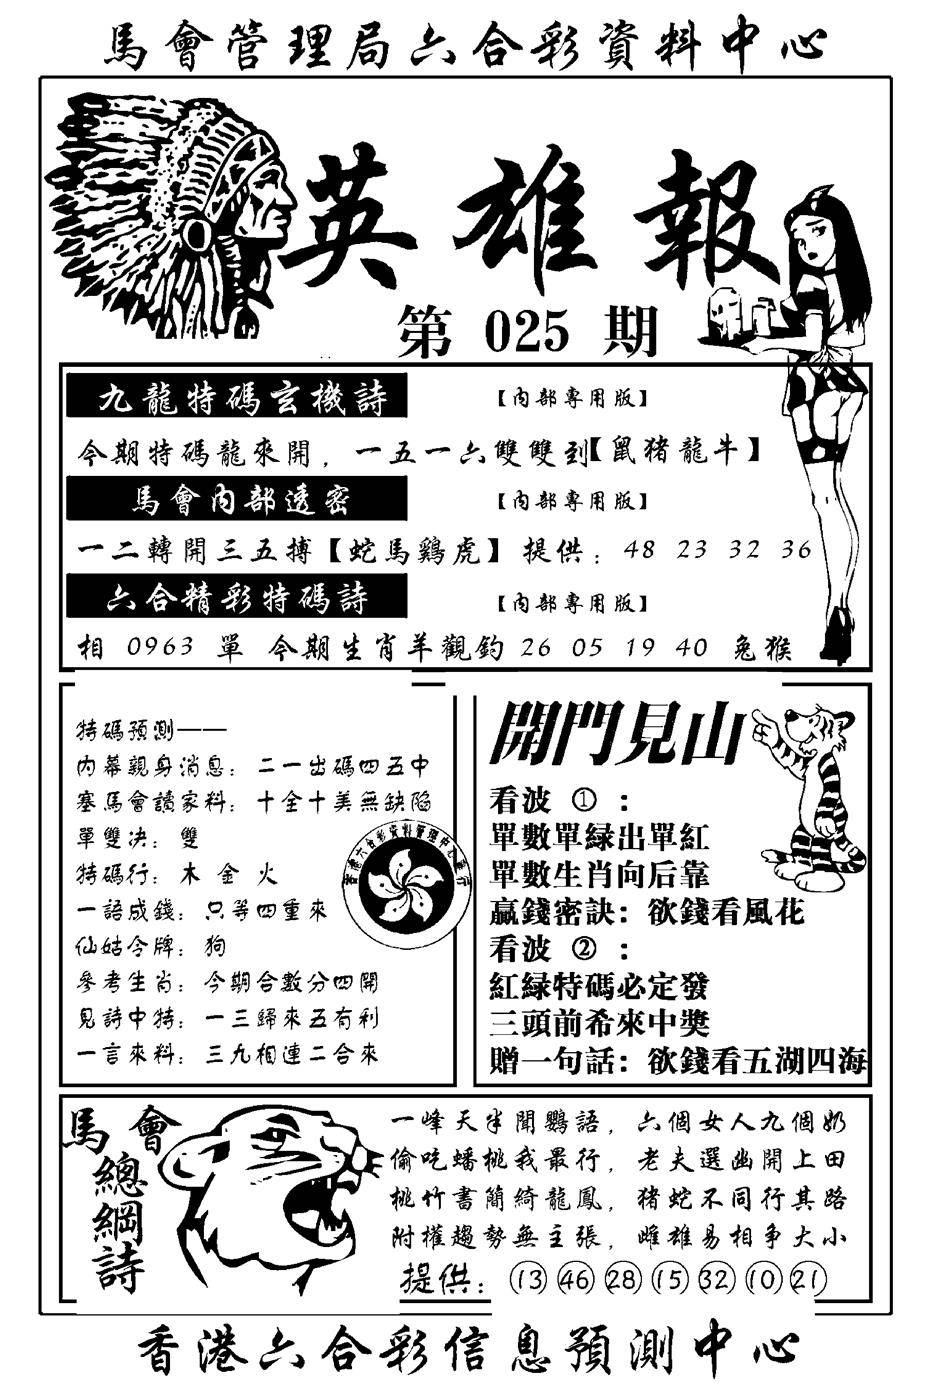 馬會管理局六合彩資料中心
英雄報
第 025 期
九龍特碼玄機詩 【內部專用版】
今期特碼龍來開，一五一六雙雙到【鼠猪龍牛】
馬會內部透密 【內部專用版】
一二轉開三五搏【蛇馬鷄虎】 提供：48 23 32 36
六合精彩特碼詩 【內部專用版】
相 0963 單 今期生肖羊觀鈞 26 05 19 40 兔猴
特碼預測——
內幕親身消息：二一出碼四五中
塞馬會讀家料：十全十美無缺陷
單雙决：雙
特碼行：木 金 火
一語成錢：只等四重來
仙姑令牌：狗
參考生肖：今期合數分四開
見詩中特：一三歸來五有利
一言來料：三九相連二合來
香港六合彩資料管理中心發行
開門見山
看波 ①：
單數單緑出單紅
單數生肖向后靠
赢錢密訣：欲錢看風花
看波 ②：
紅緑特碼必定發
三頭前希來中獎
贈一句話：欲錢看五湖四海
馬會總綱詩
一峰天半聞鸚語，六個女人九個奶
偷吃蟠桃我最行，老夫選幽開上田
桃竹書簡綺龍鳳，猪蛇不同行其路
附權趨勢無主張，雌雄易相争大小
提供：⑬ ㊻ ㉘ ⑮ ㉜ ⑩ ㉑
香港六合彩信息預測中心